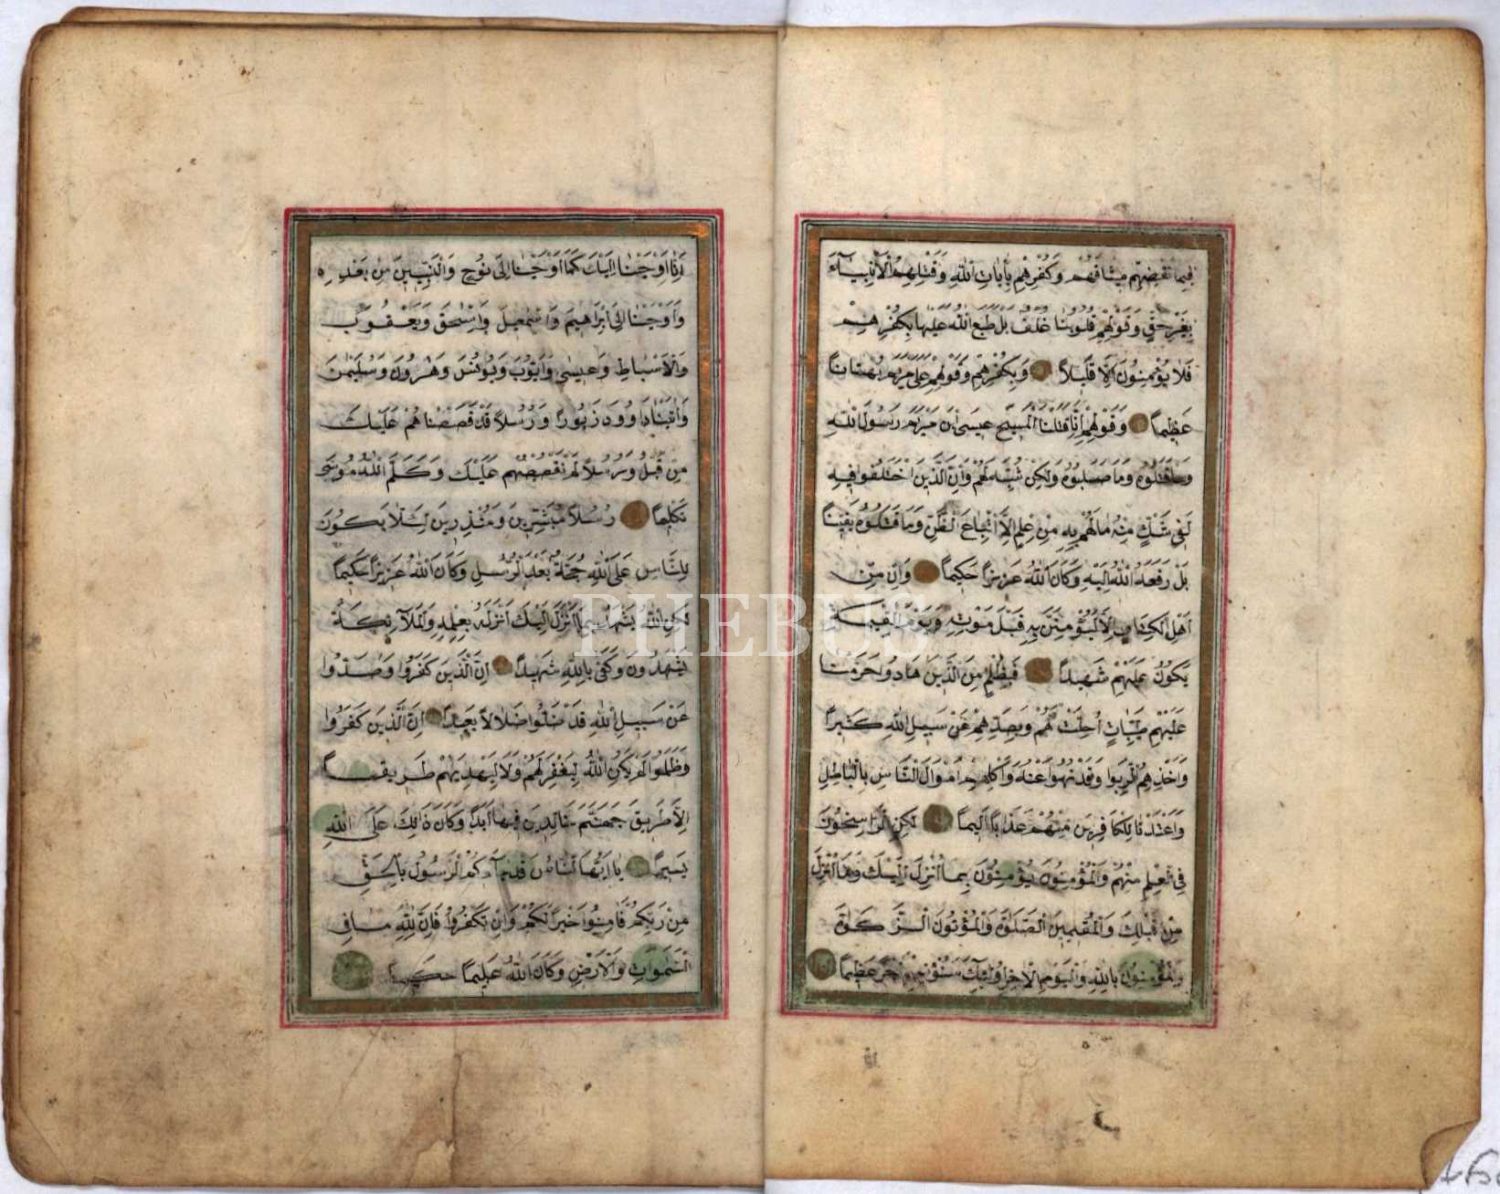 فَبِمَا نَقْضِهِمْ مِيثَاقَهُمْ وَكُفْرِهِمْ بِاٰيَاتِ اللّٰهِ وَقَتْلِهِمُ الْاَنْبِيَٓاءَ
بِغَيْرِ حَقٍّ وَقَوْلِهِمْ قُلُوبُنَا غُلْفٌ بَلْ طَبَعَ اللّٰهُ عَلَيْهَا بِكُفْرِهِمْ
فَلَا يُؤْمِنُونَ اِلَّا قَلِيلًا وَبِكُفْرِهِمْ وَقَوْلِهِمْ عَلٰى مَرْيَمَ بُهْتَانًا
عَظِيمًا وَقَوْلِهِمْ اِنَّا قَتَلْنَا الْمَسِيحَ عِيسَى ابْنَ مَرْيَمَ رَسُولَ اللّٰهِ
وَمَا قَتَلُوهُ وَمَا صَلَبُوهُ وَلٰكِنْ شُبِّهَ لَهُمْ وَاِنَّ الَّذِينَ اخْتَلَفُوا فِيهِ
لَفِي شَكٍّ مِنْهُ مَا لَهُمْ بِهِ مِنْ عِلْمٍ اِلَّا اتِّبَاعَ الظَّنِّ وَمَا قَتَلُوهُ يَقِينًا
بَلْ رَفَعَهُ اللّٰهُ اِلَيْهِ وَكَانَ اللّٰهُ عَزِيزًا حَكِيمًا وَاِنْ مِنْ
اَهْلِ الْكِتَابِ اِلَّا لَيُؤْمِنَنَّ بِهِ قَبْلَ مَوْتِهِ وَيَوْمَ الْقِيٰمَةِ
يَكُونُ عَلَيْهِمْ شَهِيدًا فَبِظُلْمٍ مِنَ الَّذِينَ هَادُوا حَرَّمْنَا
عَلَيْهِمْ طَيِّبَاتٍ اُحِلَّتْ لَهُمْ وَبِصَدِّهِمْ عَنْ سَبِيلِ اللّٰهِ كَثِيرًا
وَاَخْذِهِمُ الرِّبٰوا وَقَدْ نُهُوا عَنْهُ وَاَكْلِهِمْ اَمْوَالَ النَّاسِ بِالْبَاطِلِ
وَاَعْتَدْنَا لِلْكَافِرِينَ مِنْهُمْ عَذَابًا اَلِيمًا لٰكِنِ الرَّاسِخُونَ
فِي الْعِلْمِ مِنْهُمْ وَالْمُؤْمِنُونَ يُؤْمِنُونَ بِمَا اُنْزِلَ اِلَيْكَ وَمَا اُنْزِلَ
مِنْ قَبْلِكَ وَالْمُقِيمِينَ الصَّلٰوةَ وَالْمُؤْتُونَ الزَّكٰوةَ
وَالْمُؤْمِنُونَ بِاللّٰهِ وَالْيَوْمِ الْاٰخِرِ اُولٰٓئِكَ سَنُؤْتِيهِمْ اَجْرًا عَظِيمًا
اِنَّا اَوْحَيْنَا اِلَيْكَ كَمَا اَوْحَيْنَا اِلٰى نُوحٍ وَالنَّبِيِّينَ مِنْ بَعْدِهِ
وَاَوْحَيْنَا اِلٰى اِبْرَاهِيمَ وَاِسْمٰعِيلَ وَاِسْحٰقَ وَيَعْقُوبَ
وَالْاَسْبَاطِ وَعِيسٰى وَاَيُّوبَ وَيُونُسَ وَهٰرُونَ وَسُلَيْمٰنَ
وَاٰتَيْنَا دَاوُدَ زَبُورًا وَرُسُلًا قَدْ قَصَصْنَاهُمْ عَلَيْكَ
مِنْ قَبْلُ وَرُسُلًا لَمْ نَقْصُصْهُمْ عَلَيْكَ وَكَلَّمَ اللّٰهُ مُوسٰى
تَكْلِيمًا رُسُلًا مُبَشِّرِينَ وَمُنْذِرِينَ لِئَلَّا يَكُونَ
لِلنَّاسِ عَلَى اللّٰهِ حُجَّةٌ بَعْدَ الرُّسُلِ وَكَانَ اللّٰهُ عَزِيزًا حَكِيمًا
لٰكِنِ اللّٰهُ يَشْهَدُ بِمَا اَنْزَلَ اِلَيْكَ اَنْزَلَهُ بِعِلْمِهِ وَالْمَلٰٓئِكَةُ
يَشْهَدُونَ وَكَفٰى بِاللّٰهِ شَهِيدًا اِنَّ الَّذِينَ كَفَرُوا وَصَدُّوا
عَنْ سَبِيلِ اللّٰهِ قَدْ ضَلُّوا ضَلَالًا بَعِيدًا اِنَّ الَّذِينَ كَفَرُوا
وَظَلَمُوا لَمْ يَكُنِ اللّٰهُ لِيَغْفِرَ لَهُمْ وَلَا لِيَهْدِيَهُمْ طَرِيقًا
اِلَّا طَرِيقَ جَهَنَّمَ خَالِدِينَ فِيهَا اَبَدًا وَكَانَ ذٰلِكَ عَلَى اللّٰهِ
يَسِيرًا يَا اَيُّهَا النَّاسُ قَدْ جَٓاءَكُمُ الرَّسُولُ بِالْحَقِّ
مِنْ رَبِّكُمْ فَاٰمِنُوا خَيْرًا لَكُمْ وَاِنْ تَكْفُرُوا فَاِنَّ لِلّٰهِ مَا فِي
السَّمٰوَاتِ وَالْاَرْضِ وَكَانَ اللّٰهُ عَلِيمًا حَكِيمًا
PHEBUS